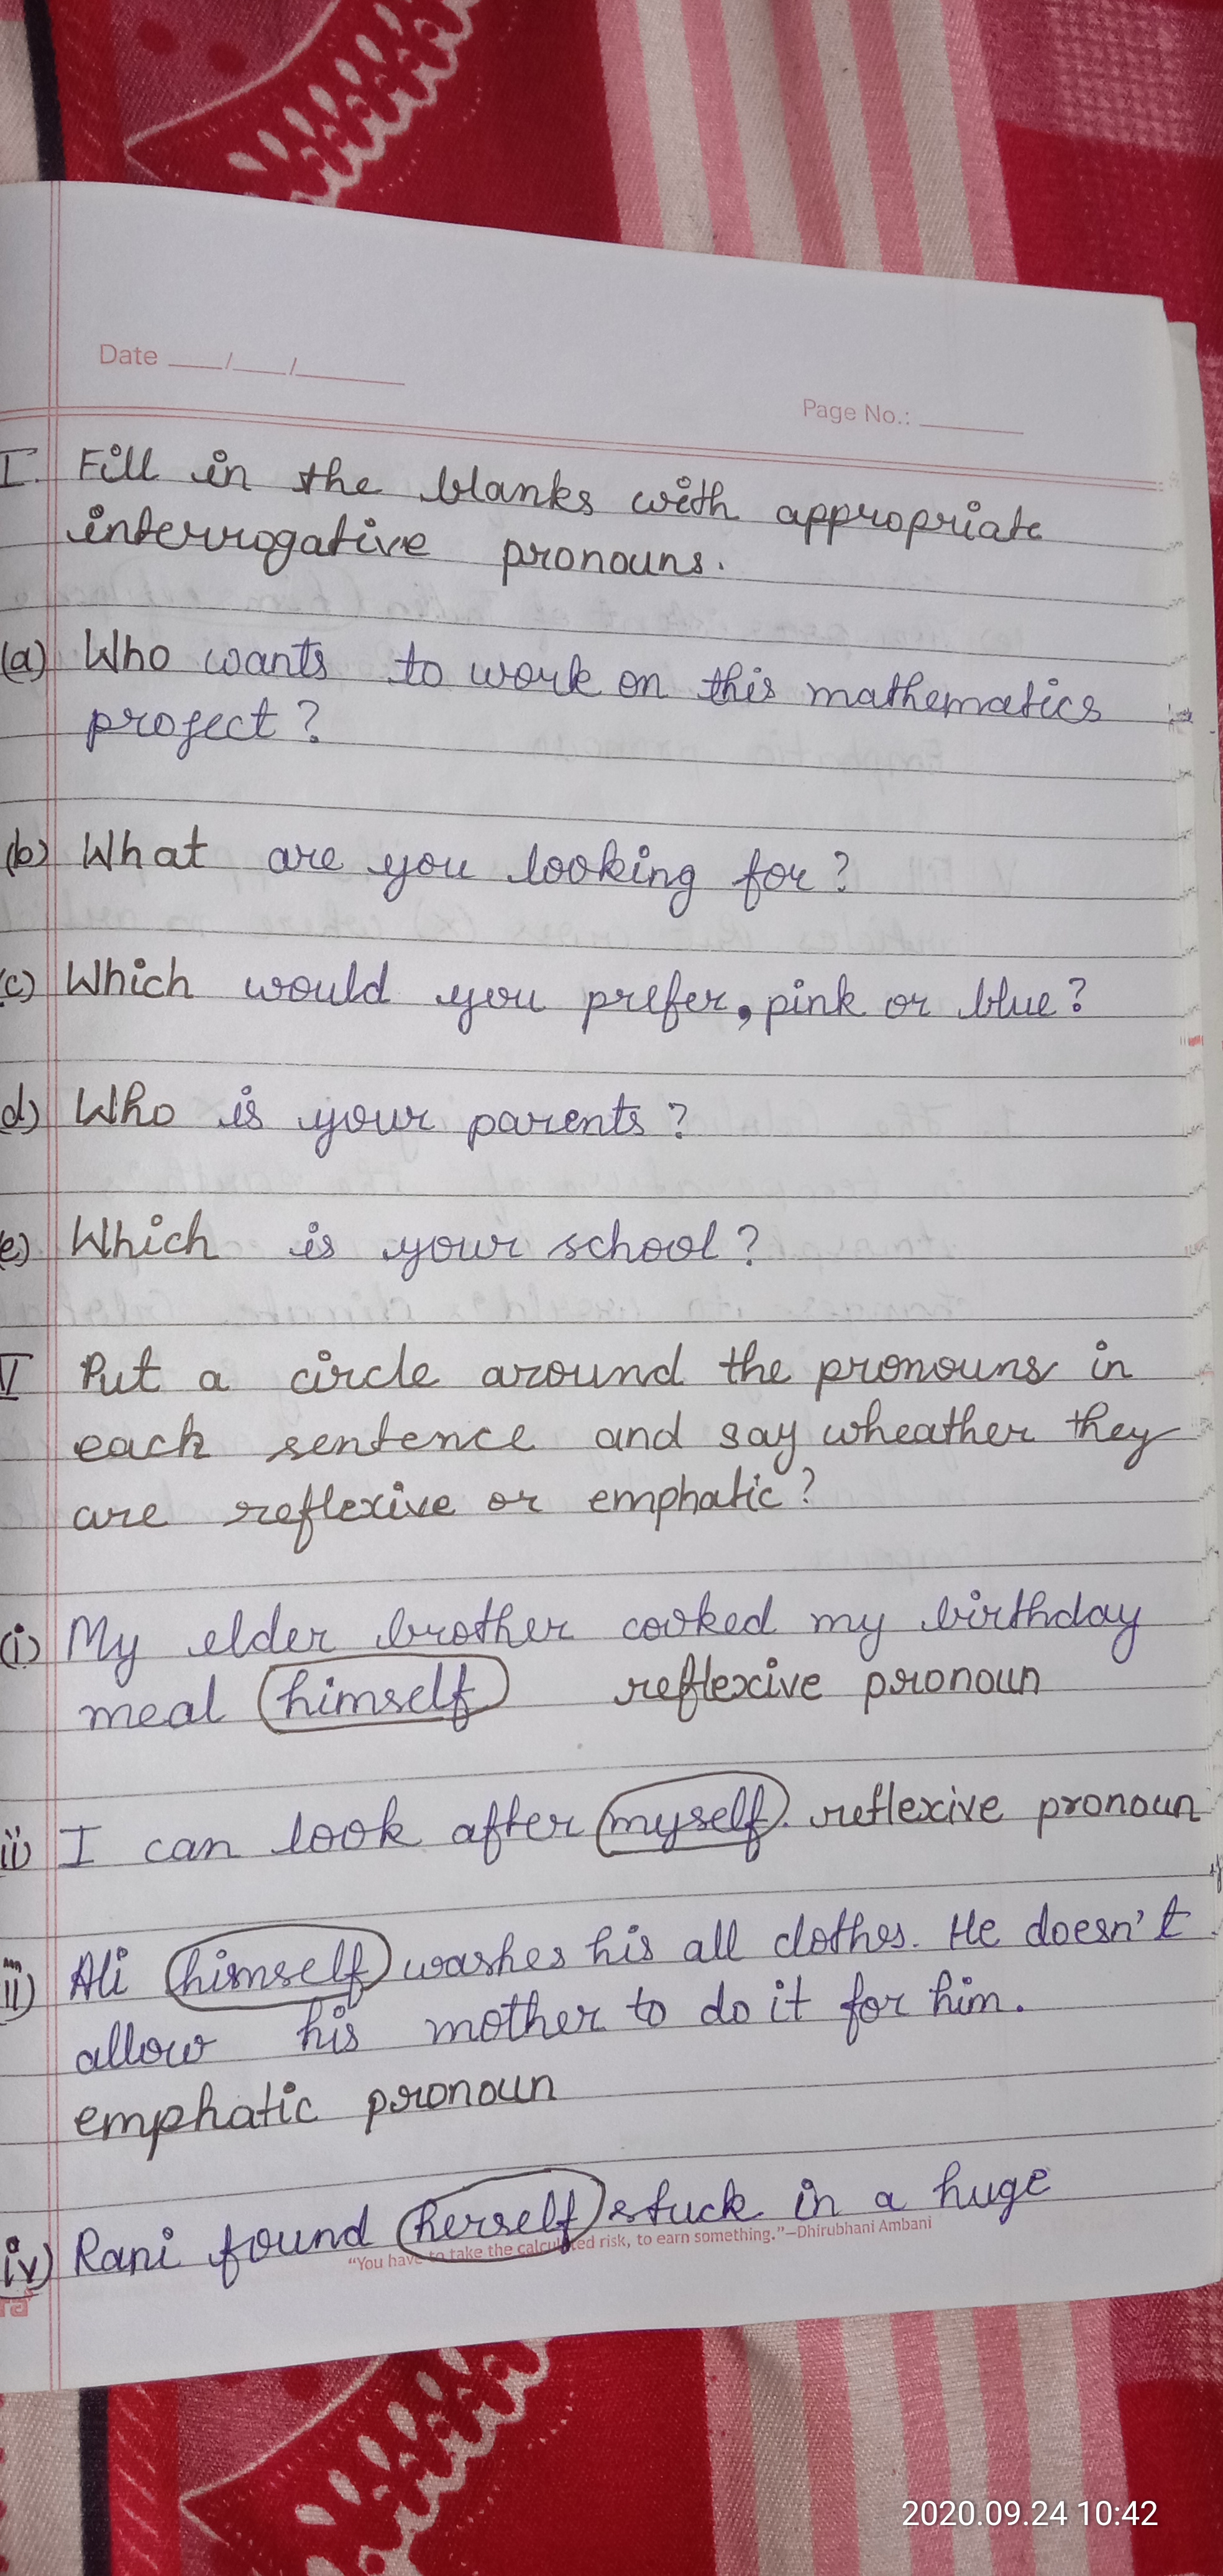 Date ___/___/______
Page No.: ______
I. Fill in the blanks with appropriate
interrogative pronouns.
(a) Who wants to work on this mathematics
project?
(b) What are you looking for?
(c) Which would you prefer, pink or blue?
d) Who is your parents?
(e) Which is your school?
Put a circle around the pronouns in
each sentence and say wheather they
are reflexive or emphatic?
(i) My elder brother cooked my birthday
meal himself reflexive pronoun
ii) I can look after myself. reflexive pronoun
Ali himself washes his all clothes. He doesn't
allow his mother to do it for him.
emphatic pronoun
iv) Rani found herself stuck in a huge
"You have to take the calculated risk, to earn something."–Dhirubhani Ambani
2020.09.24 10:42